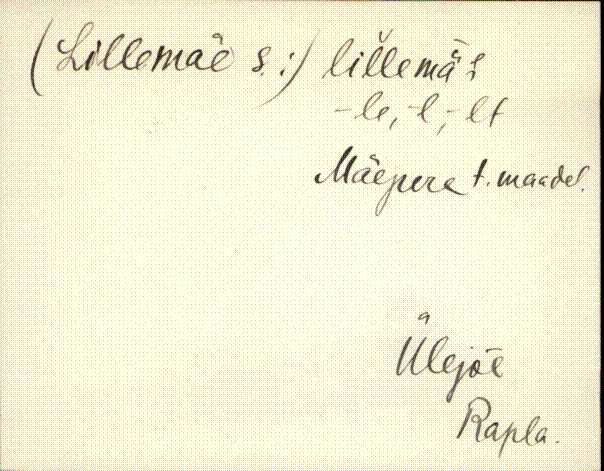 (Lillemäe s. :) lillemäe
-le, -l, -lt
Mäepere t. maadel.
Ülejõe
Rapla.